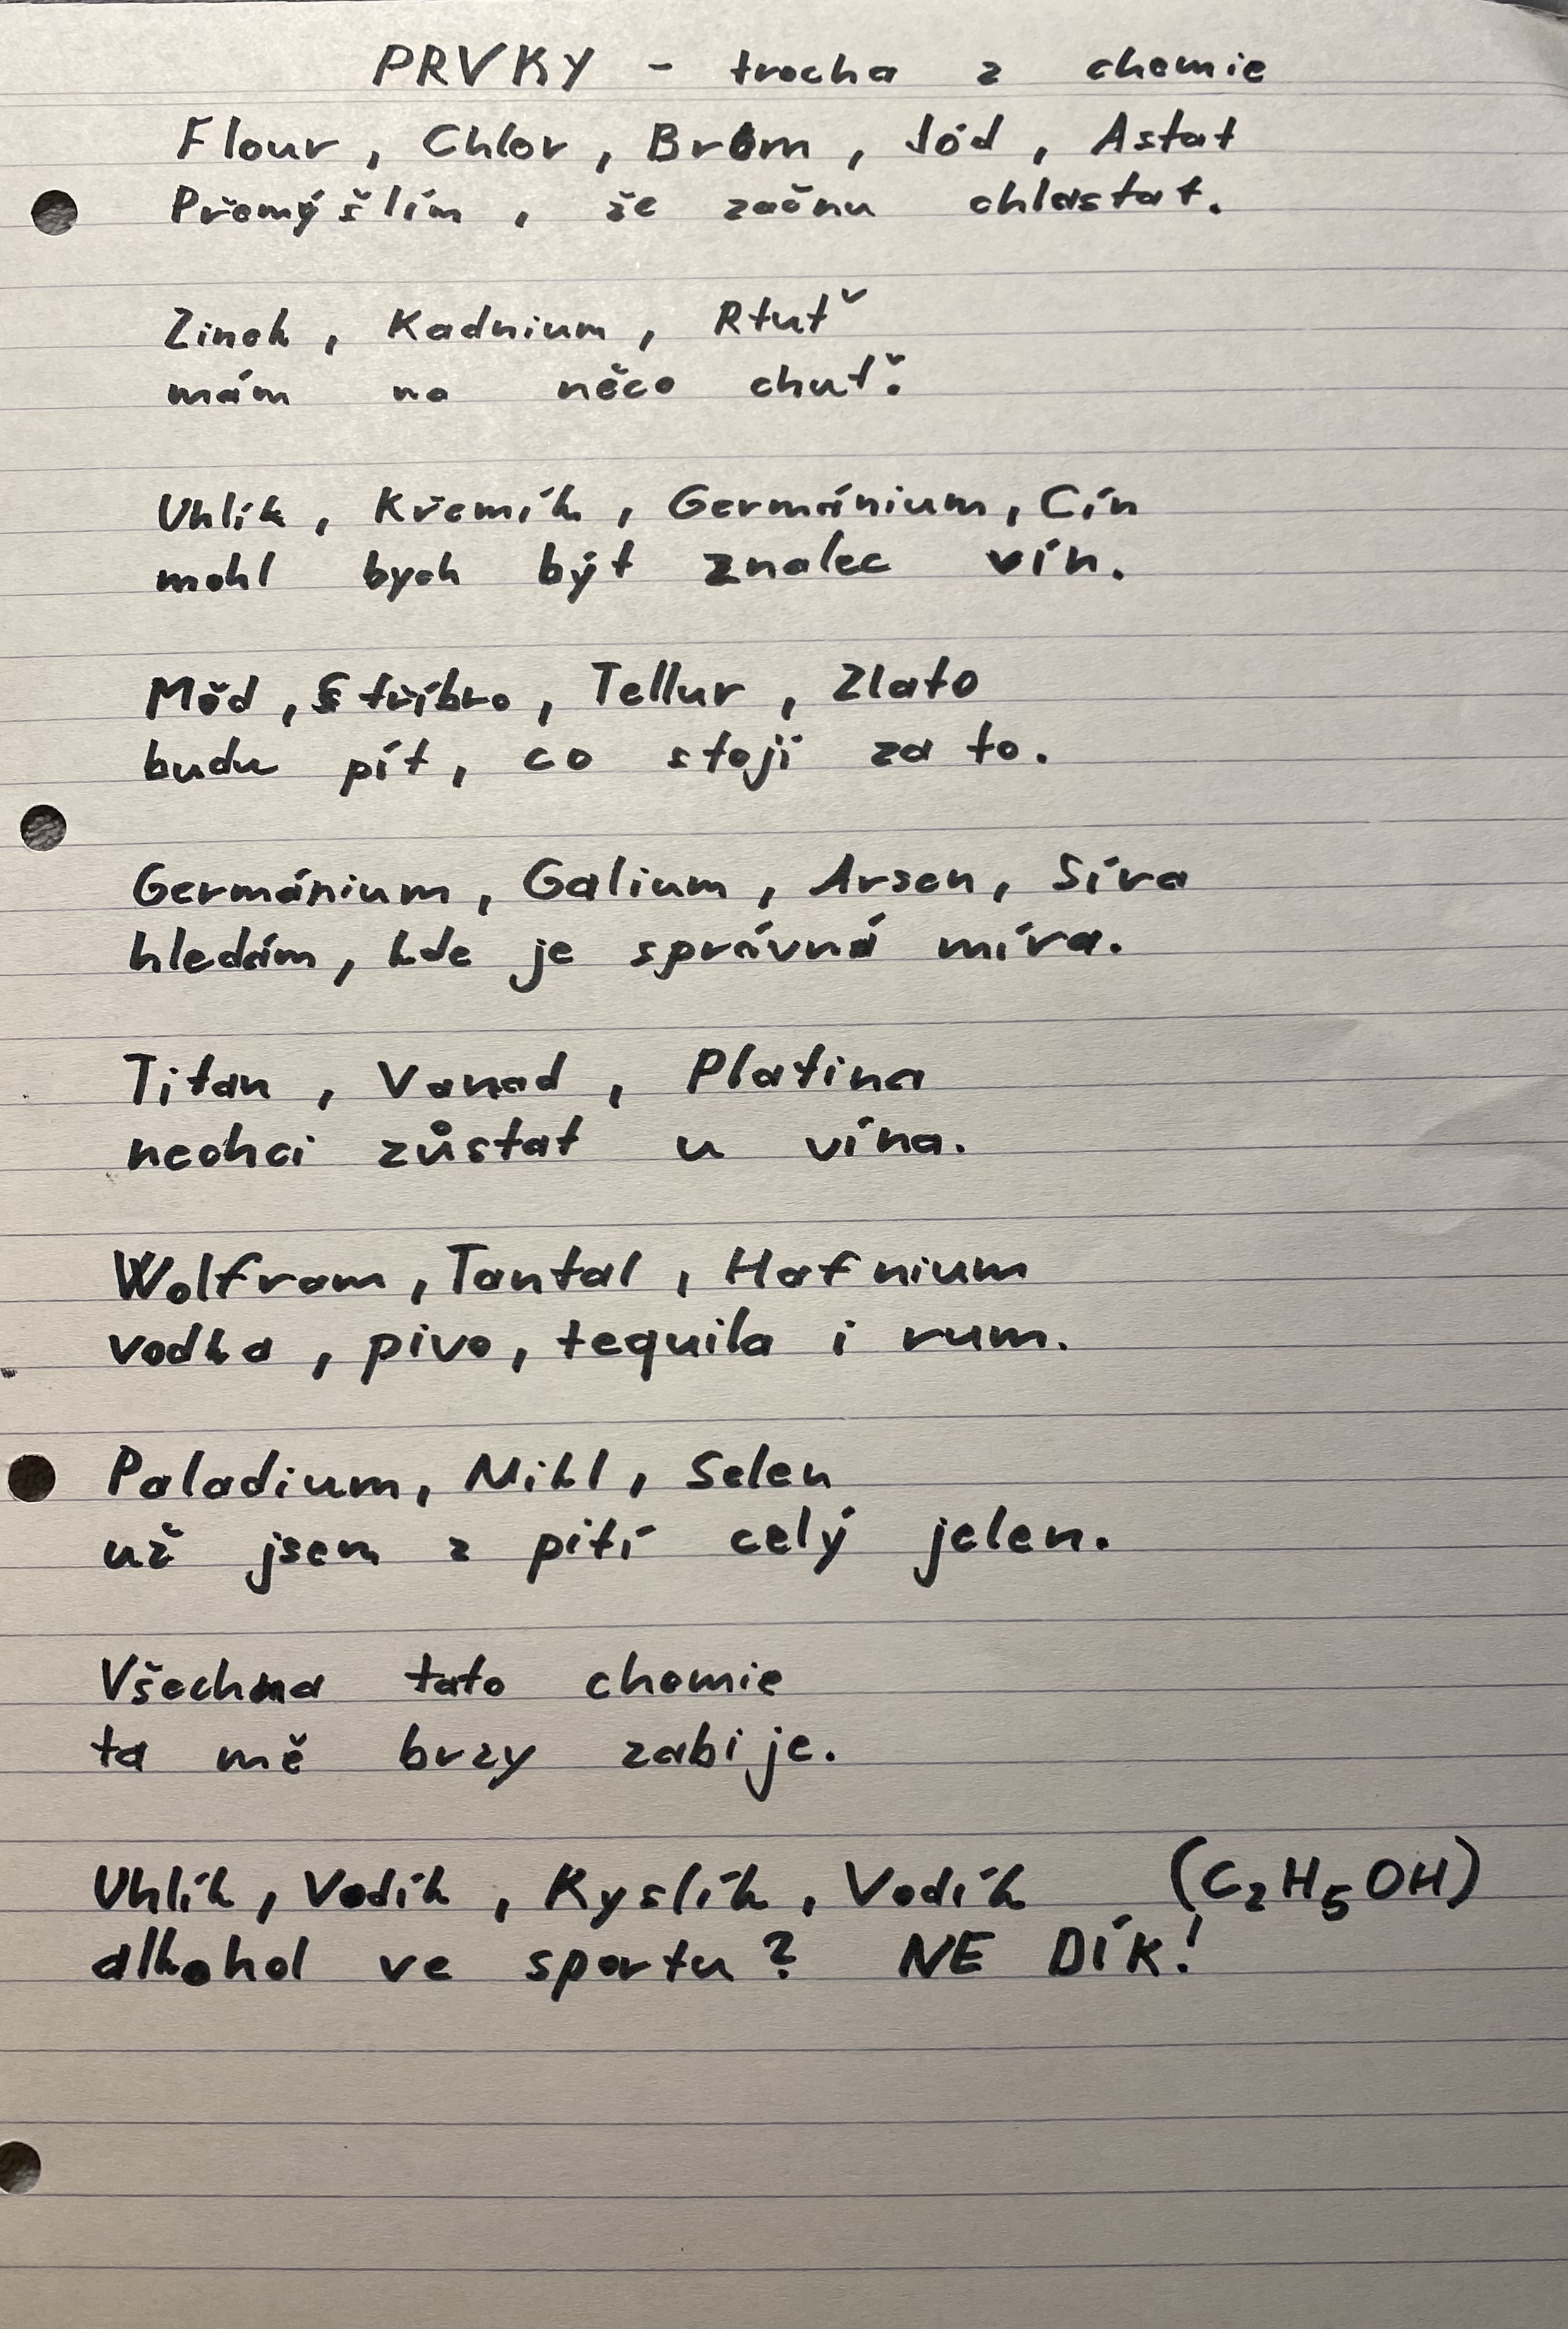 PRVKY - trocha z chemie
Flour, Chlor, Bróm, Jód, Astat
Přemýšlím, že začnu chlastat.
Zinek, Kadnium, Rtuť
mám na něco chuť.
Uhlík, Křemík, Germánium, Cín
mohl bych být znalec vín.
Měd, Stříbro, Tellur, Zlato
budu pít, co stojí za to.
Germánium, Galium, Arsen, Síra
hledám, kde je správná míra.
Titan, Vanad, Platina
nechci zůstat u vína.
Wolfram, Tantal, Hafnium
vodka, pivo, tequila i rum.
Paladium, Nikl, Selen
už jsem z pití celý jelen.
Všechna tato chemie
ta mě brzy zabije.
Uhlík, Vodík, Kyslík, Vodík (C₂H₅OH)
alkohol ve sportu? NE DÍK!